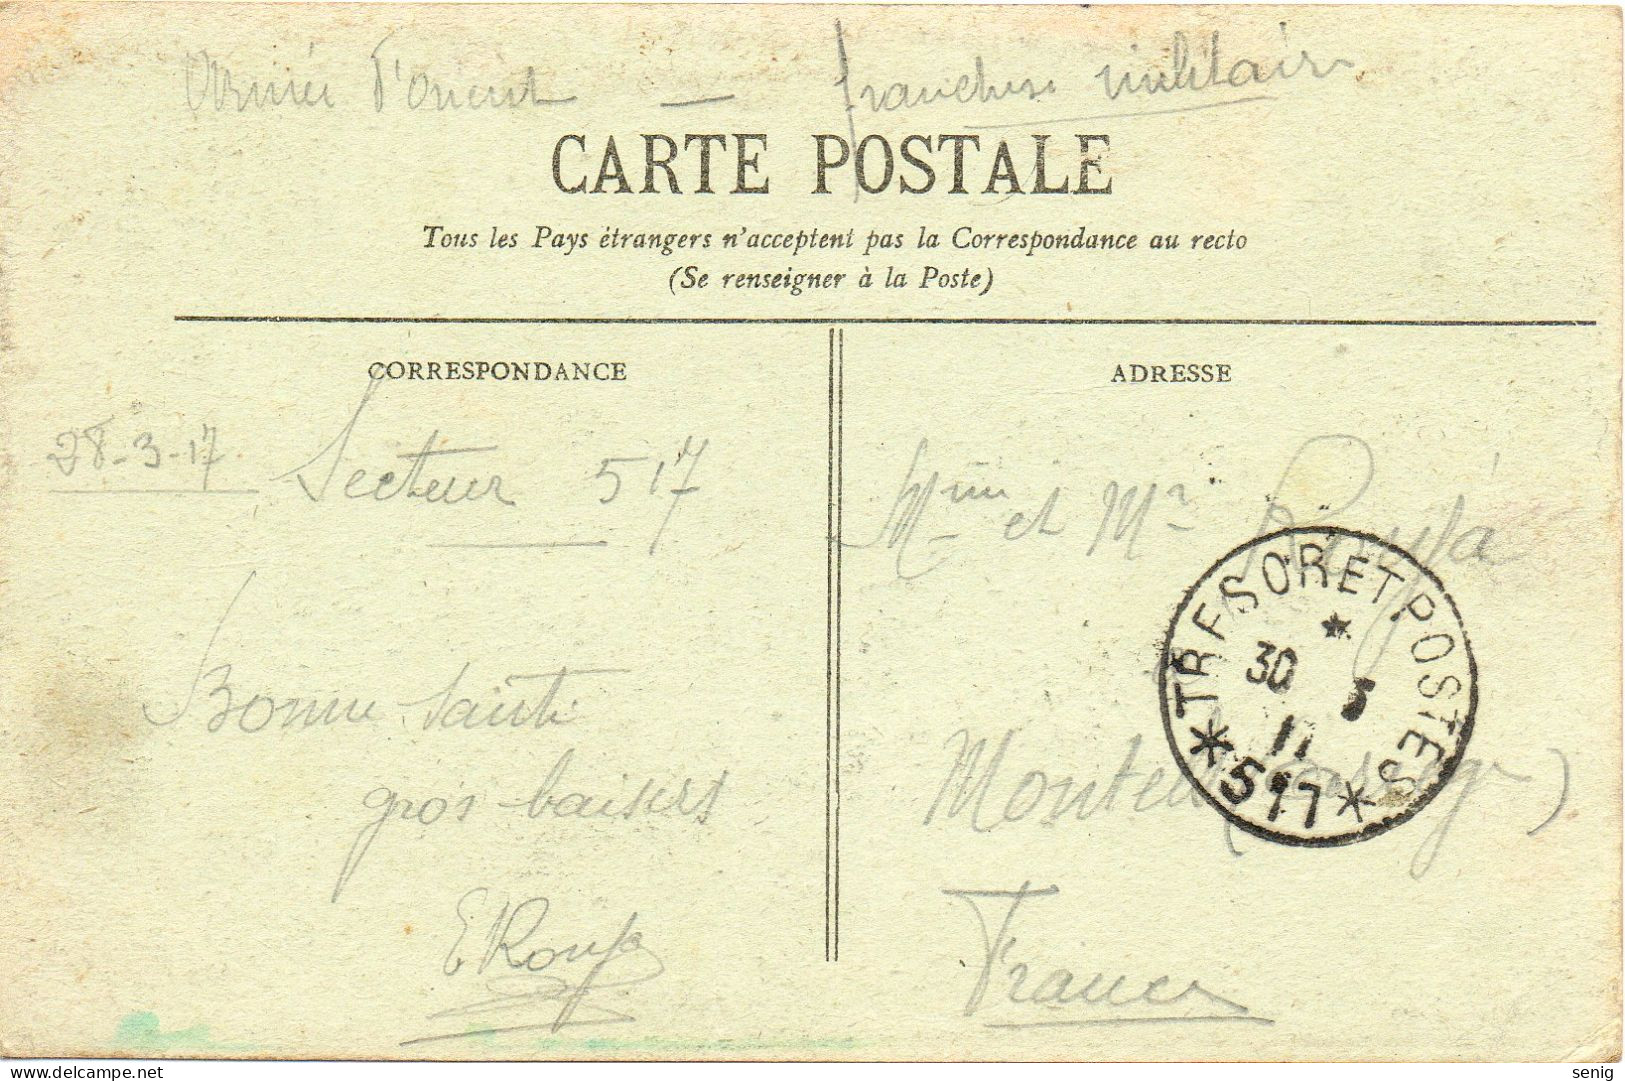 Armée d'Orient — franchise militaire
CARTE POSTALE
Tous les Pays étrangers n'acceptent pas la Correspondance au recto
(Se renseigner à la Poste)
CORRESPONDANCE
ADRESSE
28-3-17 Secteur 517
Bonne santé
gros baisers
E
Mme et Mr
TRESOR ET POSTES
30 3
517
France
delcampe.net
senig